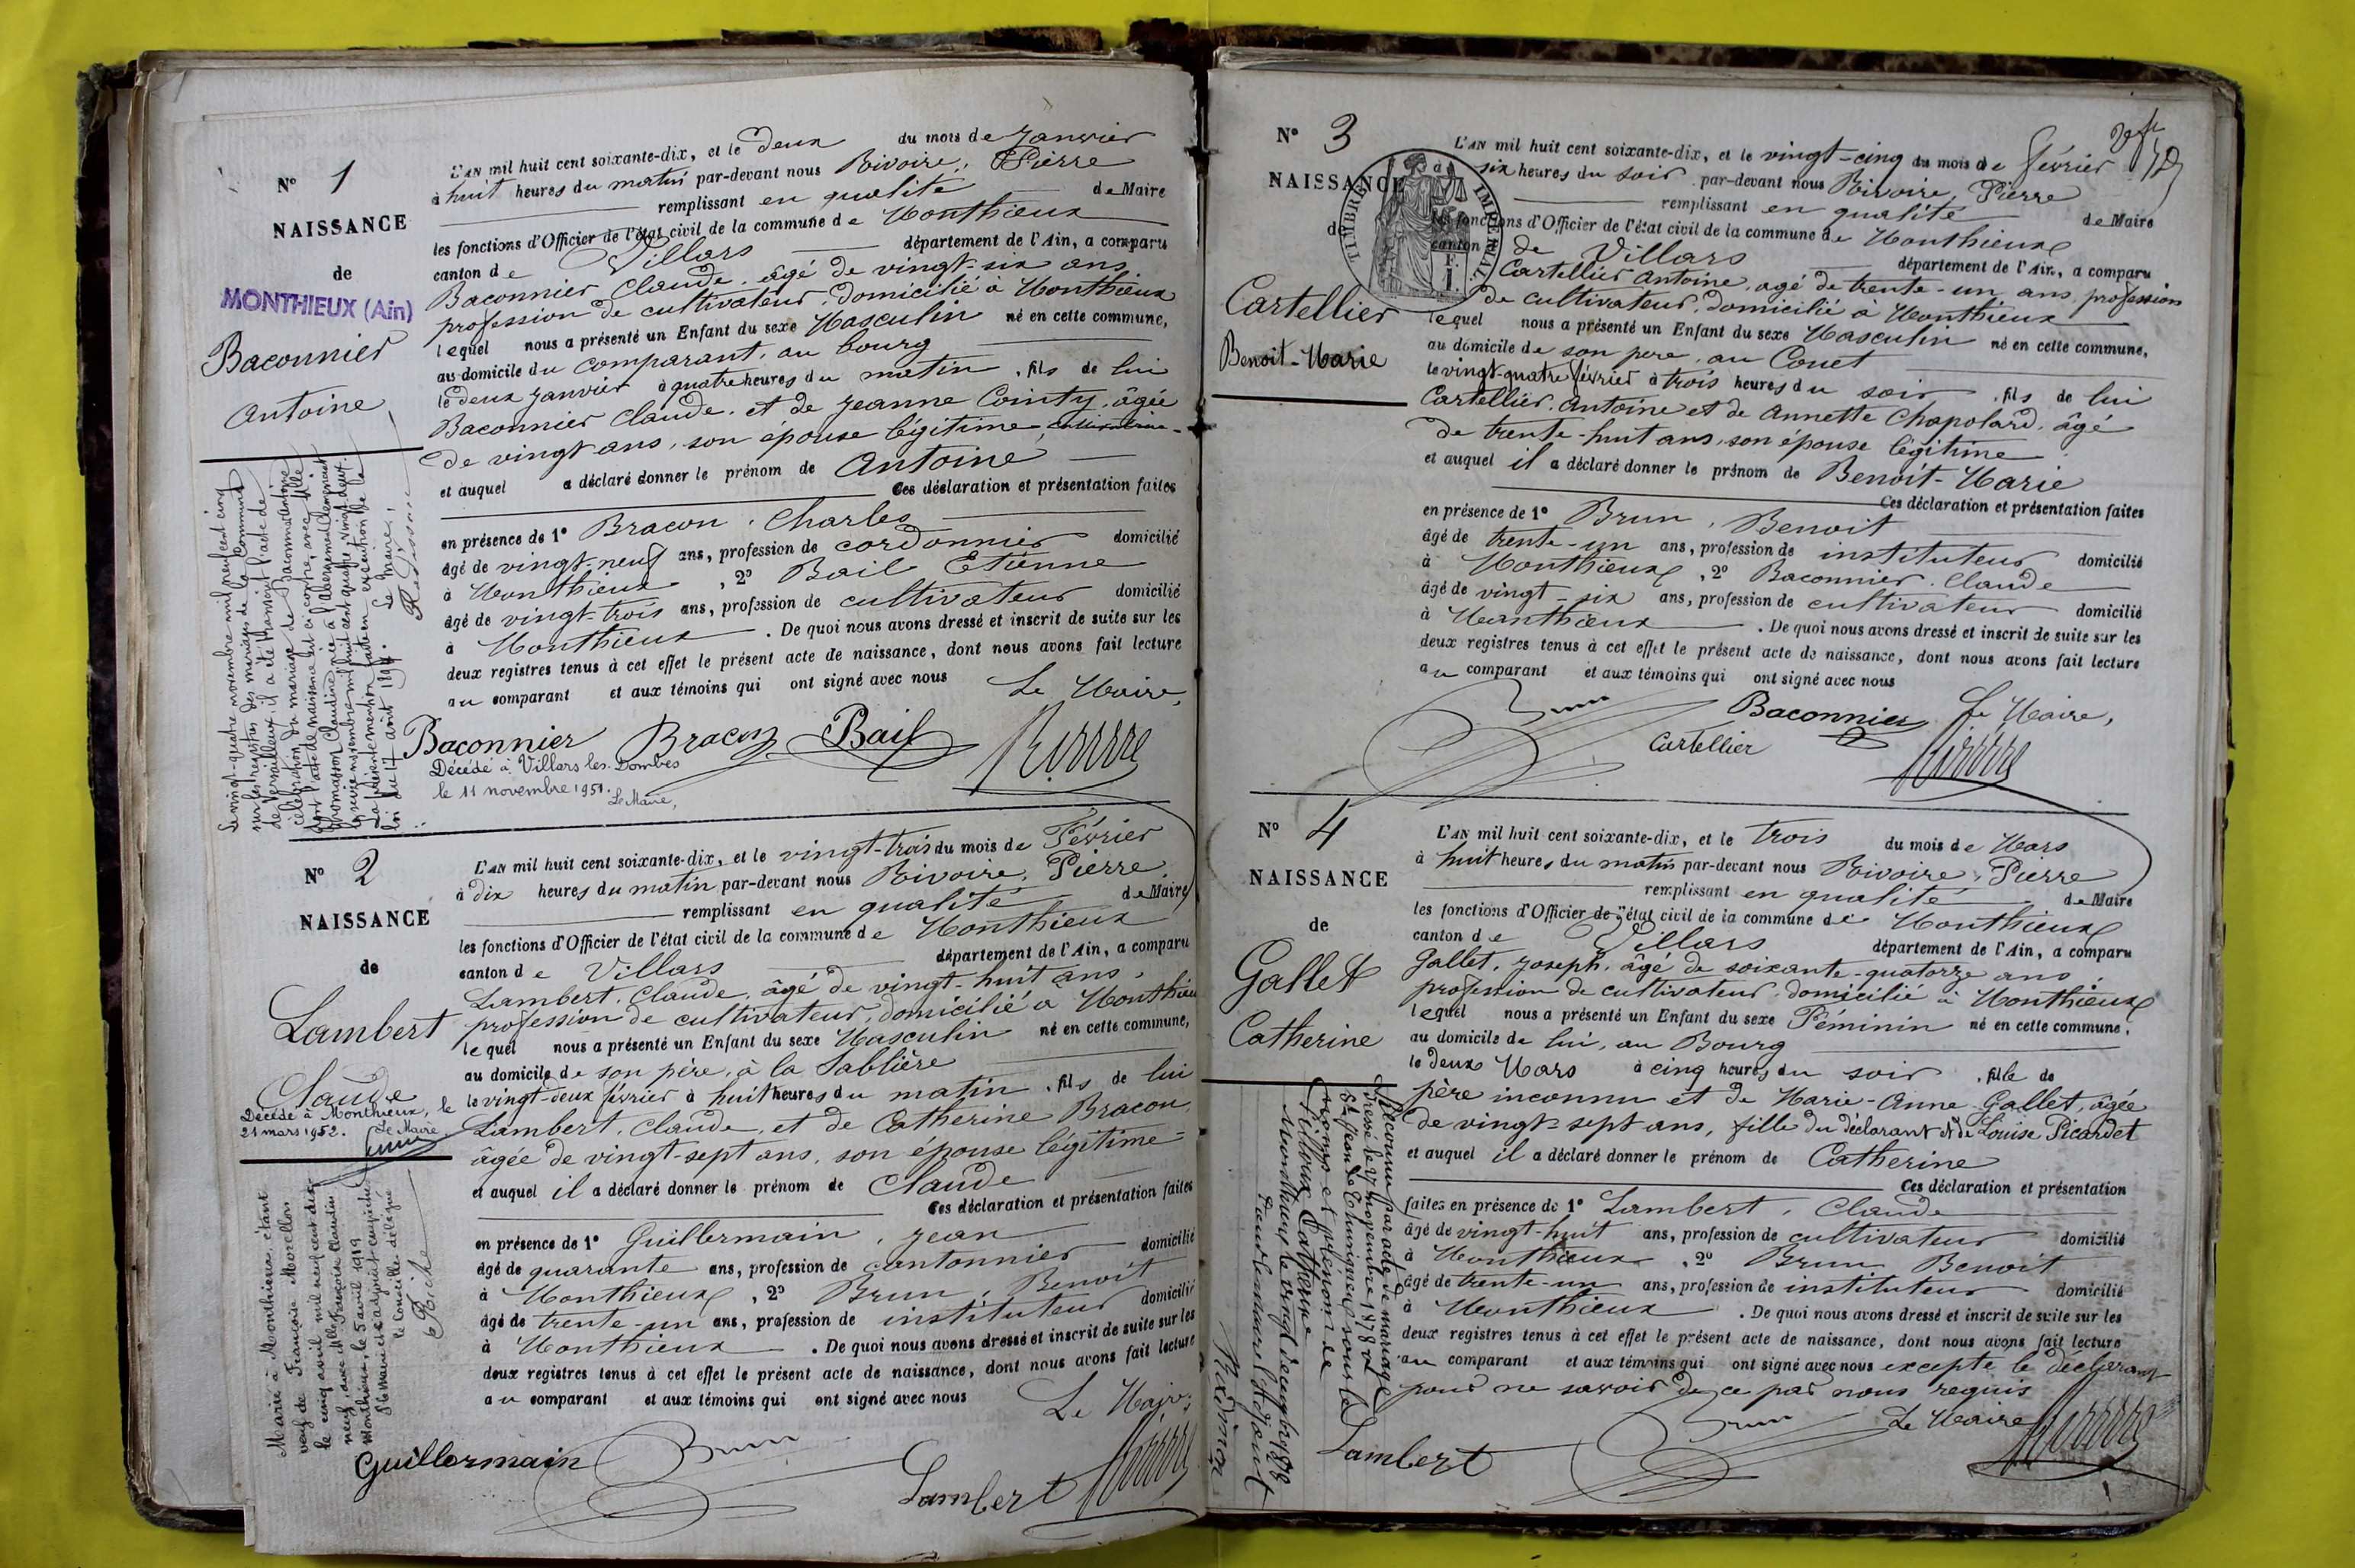 N° 1
NAISSANCE
de
MONTHIEUX (Ain)
Baconnier
Antoine
L'AN mil huit cent soixante-dix, et le deux du mois de Janvier
à huit heures du matin par-devant nous Rivoire, Pierre
remplissant en qualité de Maire
les fonctions d'Officier de l'état civil de la commune de Monthieux
canton de Villars département de l'Ain, a comparu
Baconnier Claude, âgé de vingt-six ans
profession de cultivateur, domicilié à Monthieux
lequel nous a présenté un Enfant du sexe Masculin né en cette commune,
au domicile du comparant, au bourg
le deux Janvier à quatre heures du matin, fils de lui
Baconnier Claude, et de Jeanne Cointy, âgée
de vingt ans, son épouse légitime
et auquel a déclaré donner le prénom de Antoine
Ces déclaration et présentation faites
en présence de 1° Bracon, Charles
âgé de vingt-neuf ans, profession de cordonnier domicilié
à Monthieux, 2° Bail Etienne
âgé de vingt-trois ans, profession de cultivateur domicilié
à Monthieux. De quoi nous avons dressé et inscrit de suite sur les
deux registres tenus à cet effet le présent acte de naissance, dont nous avons fait lecture
au comparant et aux témoins qui ont signé avec nous
Le Maire,
Baconnier Bracon Bail Rivoire
Décédé à Villars les Dombes
le 11 novembre 1951.
Le Maire,
Le vingt-quatre novembre mil neuf cent cinq
sur les registres des mariages de la Commune
de Versailleux, il a été transcrit l'acte de
célébration du mariage de Baconnier Antoine
dont l'acte de naissance est ci-contre, avec fille
Promasson Claudine née à l'Abergement Clemenciat
le seize novembre mil huit cent quatre vingt deux.
La présente mention faite en exécution de la
loi du 17 août 1897. Le Maire,
N° 2
NAISSANCE
de
Lambert
Claude
Décédé à Monthieux, le
21 mars 1952. Le Maire
Marié à Monthieux, étant
veuf de Françoise Morellon
le cinq avril mil neuf cent dix
neuf, avec Melle François Claudine
Monthieux, le 5 avril 1919
Pr le maire et l'adjoint empêchés
le Conseiller délégué
Riche
L'AN mil huit cent soixante-dix, et le vingt-trois du mois de Février
à dix heures du matin par-devant nous Rivoire, Pierre
remplissant en qualité de Maire
les fonctions d'Officier de l'état civil de la commune de Monthieux
canton de Villars département de l'Ain, a comparu
Lambert, Claude, âgé de vingt-huit ans,
profession de cultivateur, domicilié à Monthieu
lequel nous a présenté un Enfant du sexe Masculin né en cette commune,
au domicile de son père, à la Sablière
le vingt-deux février à huit heures du matin, fils de lui
Lambert, Claude, et de Catherine Bracon,
âgée de vingt-sept ans, son épouse légitime
et auquel il a déclaré donner le prénom de Claude
Ces déclaration et présentation faites
en présence de 1° Guillermain, Jean
âgé de quarante ans, profession de cantonnier domicilié
à Monthieux, 2° Brun, Benoit
âgé de trente-un ans, profession de instituteur domicilié
à Monthieux. De quoi nous avons dressé et inscrit de suite sur les
deux registres tenus à cet effet le présent acte de naissance, dont nous avons fait lecture
au comparant et aux témoins qui ont signé avec nous
Le Maire
Guillermain Brun Lambert Rivoire
N° 3
NAISSANCE
de
TIMBRE IMPÉRIAL
Cartellier
Benoit-Marie
L'AN mil huit cent soixante-dix, et le vingt-cinq du mois de février
à six heures du soir par-devant nous Rivoire, Pierre
remplissant en qualité de Maire
les fonctions d'Officier de l'état civil de la commune de Monthieux
canton de Villars département de l'Ain, a comparu
Cartellier Antoine, agé de trente-un ans, profession
de cultivateur, domicilié à Monthieux
lequel nous a présenté un Enfant du sexe Masculin né en cette commune,
au domicile de son pere, au Couet
le vingt-quatre février à trois heures du soir, fils de lui
Cartellier, Antoine et de Annette Chapolard, âgé
de trente-huit ans, son épouse légitime
et auquel il a déclaré donner le prénom de Benoit-Marie
Ces déclaration et présentation faites
en présence de 1° Brun, Benoit
âgé de trente-un ans, profession de instituteur domicilié
à Monthieux, 2° Baconnier, Claude
âgé de vingt-six ans, profession de cultivateur domicilié
à Monthieux. De quoi nous avons dressé et inscrit de suite sur les
deux registres tenus à cet effet le présent acte de naissance, dont nous avons fait lecture
au comparant et aux témoins qui ont signé avec nous
Brun Baconnier Le Maire,
Cartellier Rivoire
N° 4
NAISSANCE
de
Gallet
Catherine
L'AN mil huit cent soixante-dix, et le trois du mois de Mars
à huit heures du matin par-devant nous Rivoire, Pierre
remplissant en qualité de Maire
les fonctions d'Officier de l'état civil de la commune de Monthieux
canton de Villars département de l'Ain, a comparu
Gallet, Joseph, âgé de soixante-quatorze ans,
profession de cultivateur, domicilié à Monthieux
lequel nous a présenté un Enfant du sexe Féminin né en cette commune,
au domicile de lui, au Bourg
le deux Mars à cinq heures du soir, fille de
père inconnu et de Marie-Anne Gallet, âgée
de vingt-sept ans, fille du déclarant et de Louise Picardet
et auquel il a déclaré donner le prénom de Catherine
Ces déclaration et présentation
faites en présence de 1° Lambert, Claude
âgé de vingt-huit ans, profession de cultivateur domicilié
à Monthieux, 2° Brun Benoit
âgé de trente-un ans, profession de instituteur domicilié
à Monthieux. De quoi nous avons dressé et inscrit de suite sur les
deux registres tenus à cet effet le présent acte de naissance, dont nous avons fait lecture
au comparant et aux témoins qui ont signé avec nous excepté le déclarant
pour ne savoir de ce par nous requis
Brun Le Maire
Lambert Rivoire
Reconnu par acte de mariage
Dressé le 27 novembre 1878 à
St Jean de Thurigneux sous les
noms et prénom de
Catherine
Monthieux le vingt décembre 1878